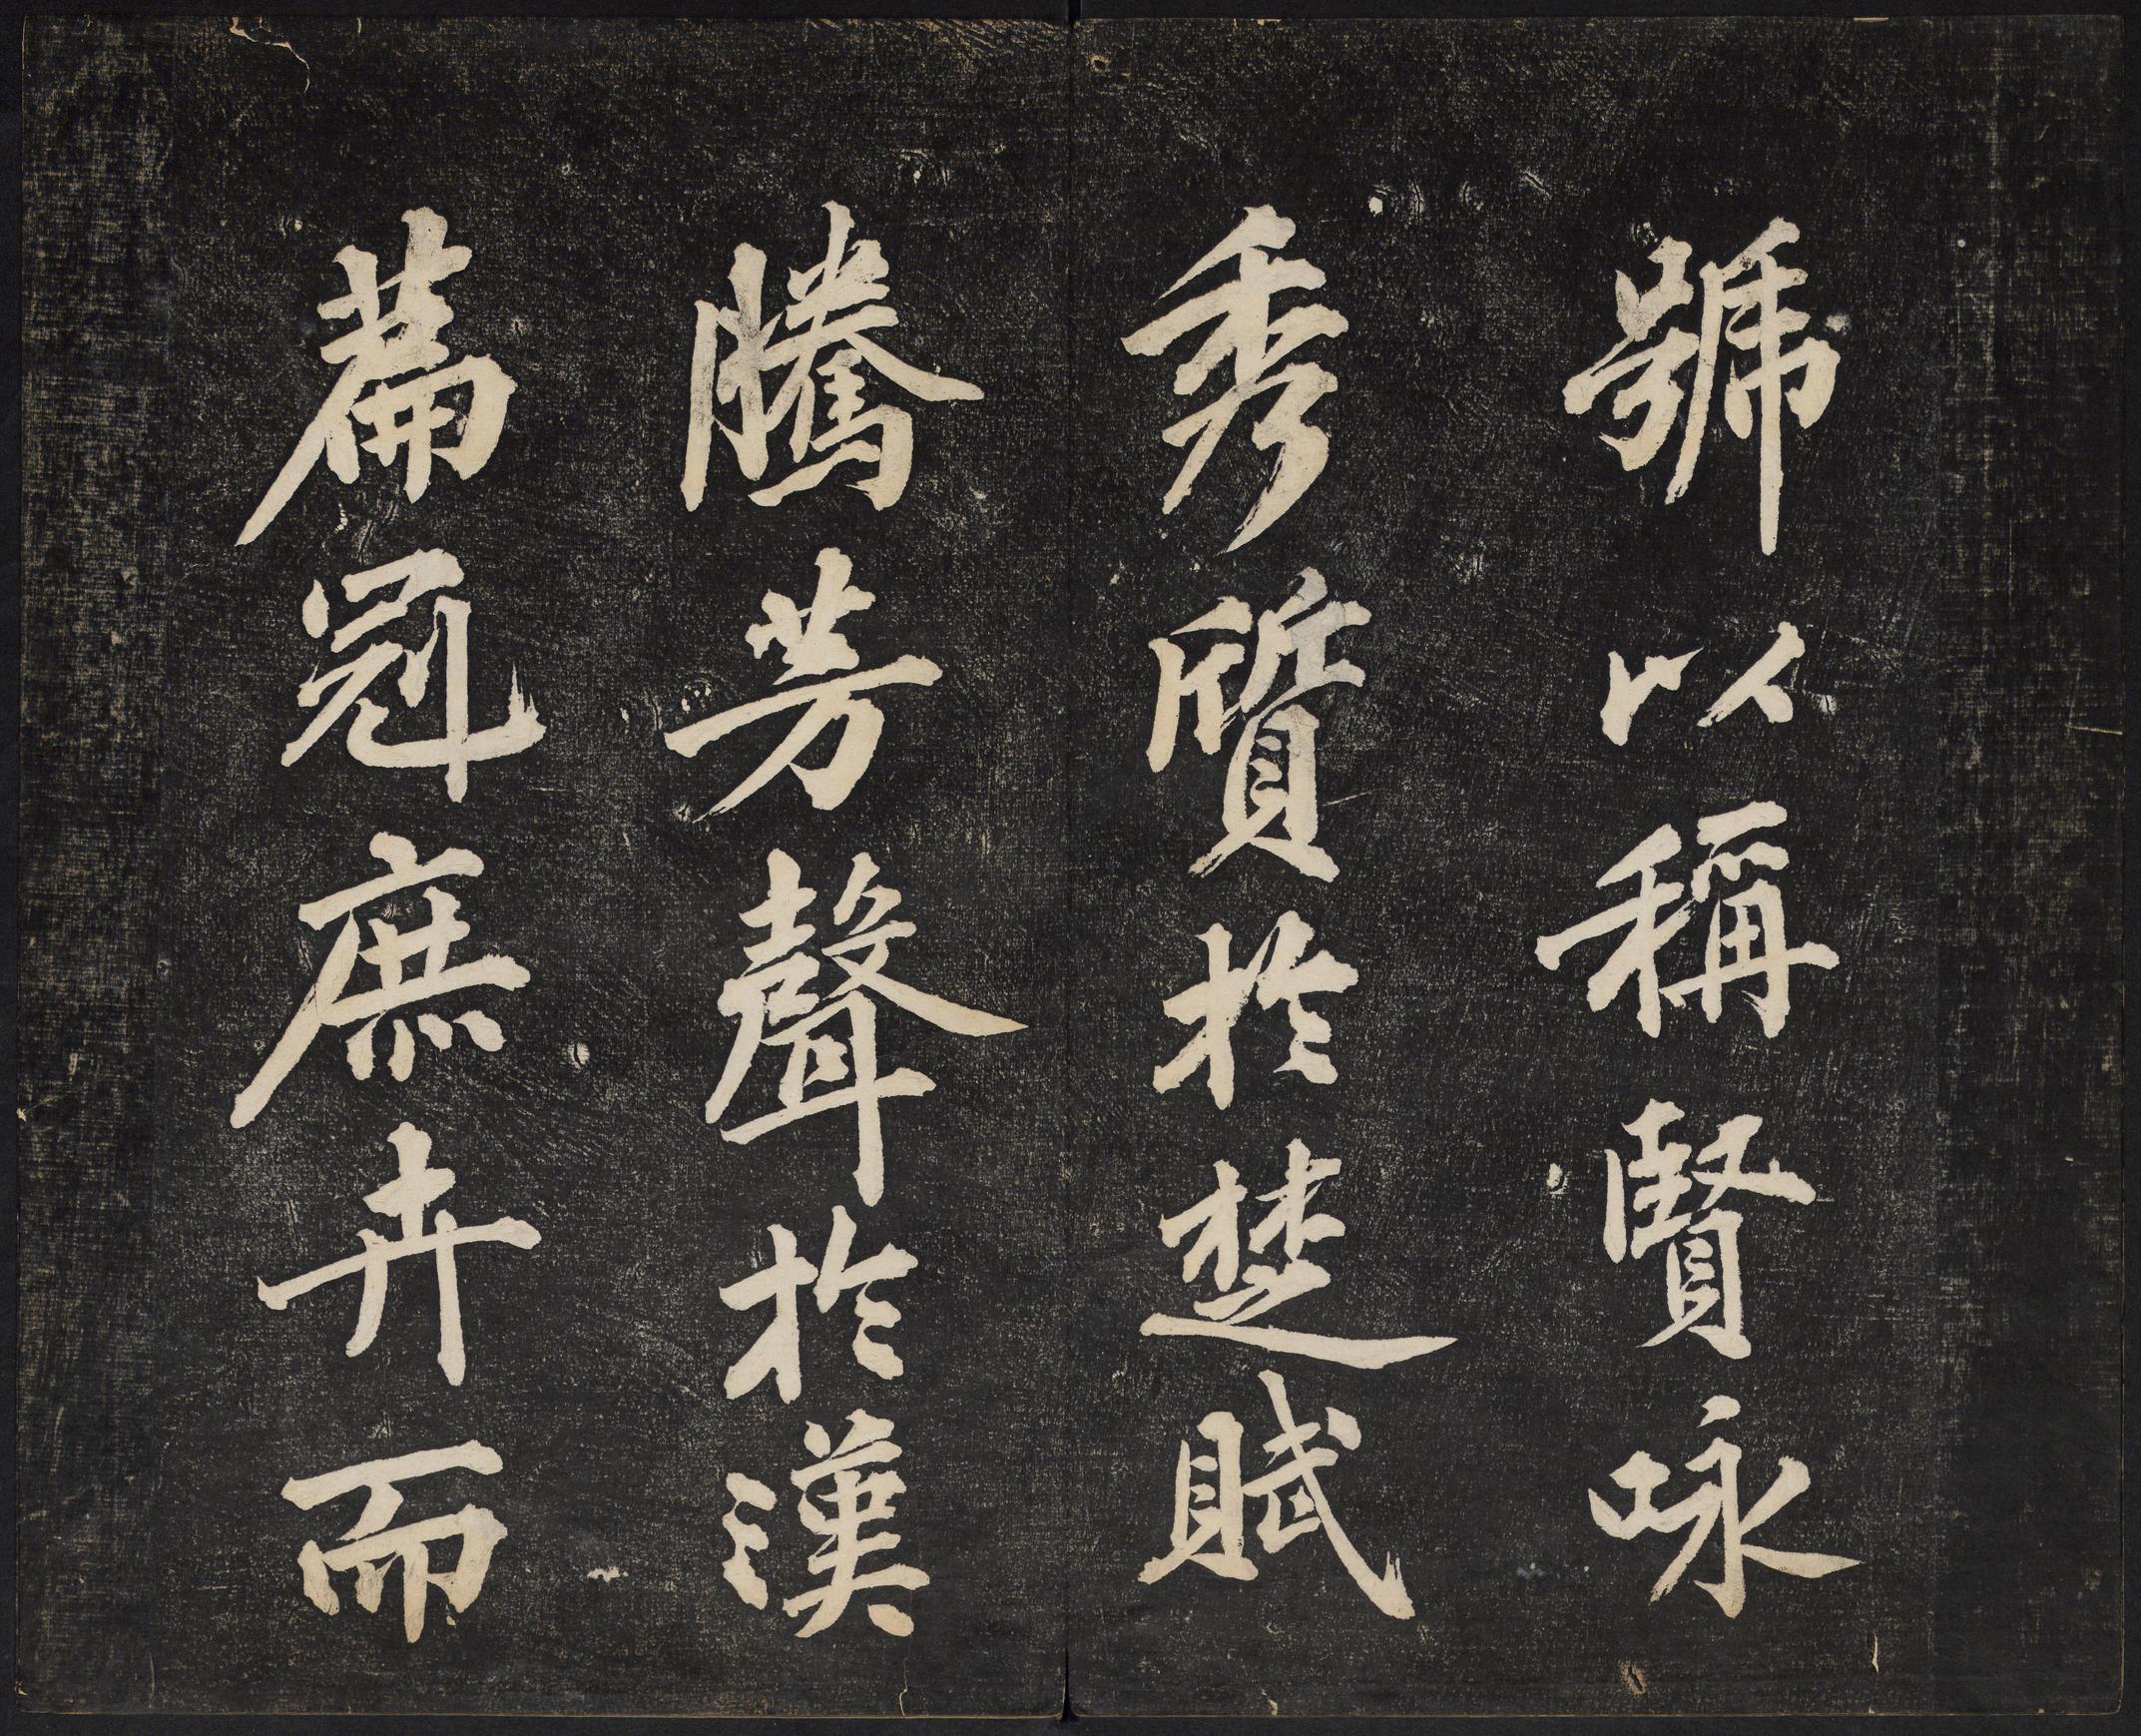 號以稱賢詠
秀質於楚賦
騰芳聲於漢
篇冠庶卉而